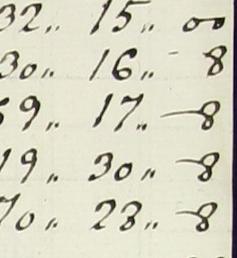 32 〃 15 〃 00
30 〃 16 〃 - 8
59 〃 17 〃 - 8
19 〃 30 〃 - 8
70 〃 23 〃 - 8